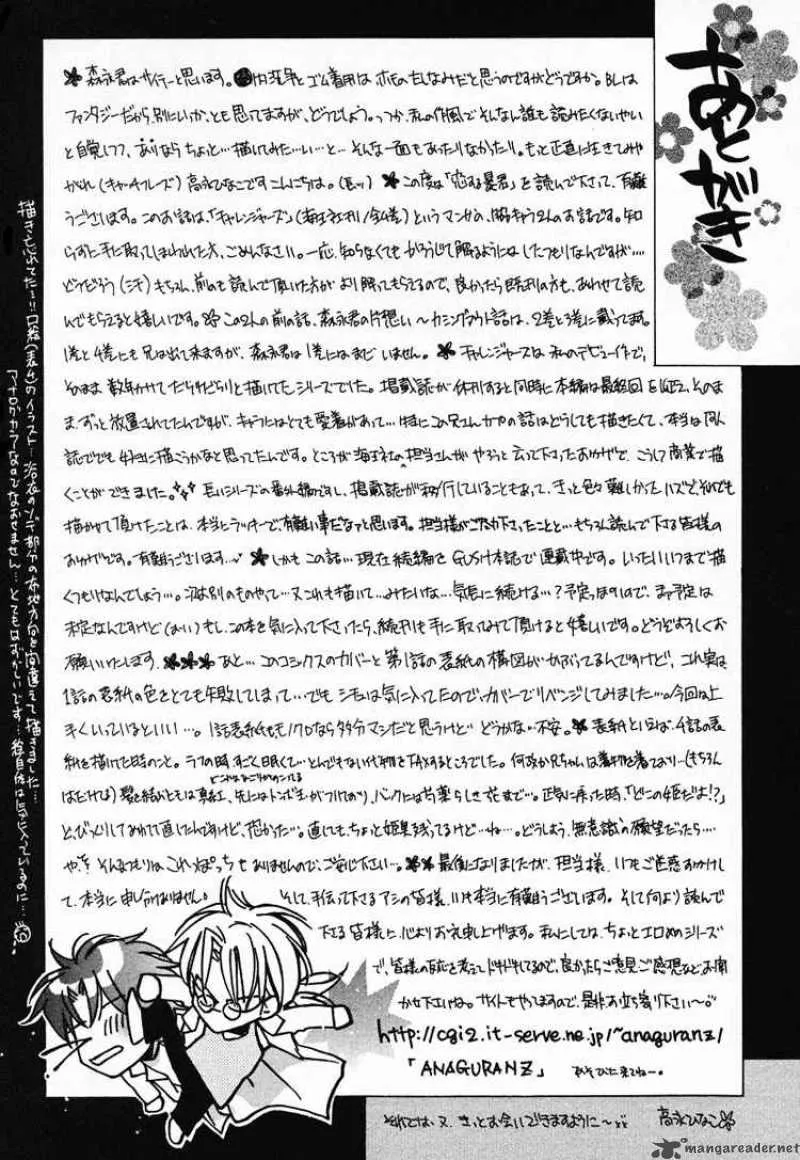 あとがき
✽森永君はサイテーと思います。
ファンタジーだから別にいいか、とも思ってますが、どうでしょう。っつか、私の作風でそんなん誰も読みたくないやい
と自覚しつつ、ありならちょっと…描いてみた…い…と…そんな一面もあったりなかったり。もっと正直に生きてみや
がれ(キャッチフレーズ)高永ひなこですこんにちは。(長っ)✽この度は「恋する暴君」を読んで下さって、有難
うございます。このお話は、「チャレンジャーズ」(海王社刊/全4巻)というマンガの、脇キャラ2人のお話です。知
らずに手に取ってしまわれた方、ごめんなさい。一応、知らなくてもかろうじて解るようにはしたつもりなんですが…
どうだろう もちろん、前のも読んで頂いた方がより解ってもらえるので、良かったら既刊の方も、あわせて読
んでもらえると嬉しいです。✽この2人の前の話、森永君の片想い〜カミングアウト話は、2巻と3巻に載ってます。
1巻と4巻にも兄は出て来ますが、森永君は1巻にはまだいません。✽チャレンジャーズは私のデビュー作で、
そのまま数年かけてだらだらと描いてたシリーズでした。掲載誌が休刊すると同時に本編は最終回を迎え、そのま
ま、ずっと放置されてたんですが、キャラにはとても愛着があって…特にこの兄さんがやの話はどうしても描きたくて、本当は同人
誌ででも好きに描こうかなと思ってたんです。ところが海王社の担当さんがやろうと云って下さったおかげで、こうして商業で描
くことができました。長いシリーズの番外編ですし、掲載誌が移行していることもあって、きっと色々難しかったハズで、それでも
描かせて頂けたことは、本当にラッキーで有難い事だなァと思います。担当様がご尽力下さったことと…もちろん読んで下さる皆様の
おかげです。有難うございます…✽しかもこの話…現在続編をGUSH本誌で連載中です。いったいいつまで描
くつもりなんでしょう…。次は別のものやって…又これも描いて…みたいな…気長に続ける…?予定っぽいので、まァ予定は
未定なんですけど(おい)もし、この本を気に入って下さったら、続刊も手に取ってみて頂けると嬉しいです。どうぞよろしくお
願いいたします。✽✽✽あと…このコミックスのカバーと第1話の表紙の構図がかぶってるんですけど、これ実は
1話の表紙の色をとても失敗してしまって…でもシチュは気に入ってたので、カバーでリベンジしてみました…。今回は上
手くいっているといい…。1話表紙もモノクロなら多分マシだと思うけど どうかな…不安。✽表紙といえば、4話の表
紙を描いてた時のこと。ラフの時すごく眠くて…とんでもない代物をFAXするところでした。何故か兄ちゃんは着物を着ており…(もちろん
はだけて)髪を結おうともは 先にはトンボ玉がつけてあり、バックには若葉らしき花まで…。正気に戻った時、「どこの姫だよ!?」
と、びっくりしてあわてて直したんですけど、危かった…。直しても、ちょっと姫臭残ってるけど…ね…。どうしよう、無意識の願望だったら…
や、そんなつもりはこれっぽっちもありませんので、ご安心下さい…。✽✽最後になりましたが、担当様、いつもご迷惑おかけし
て、本当に申し訳ありません。そして、手伝って下さるアシの皆様、いつも本当に有難うございます。そして何より読んで
下さる皆様に、心よりお礼申し上げます。私にしては、ちょっとエロめのシリーズ
で、皆様の反応を考えてドキドキしてるので、良かったらご意見ご感想などお聞
かせ下さいね。サイトもやってますので、是非お立ち寄り下さい〜。
http://cgi2.it-serve.ne.jp/~anaguranz/
「ANAGURANZ」 あそびに来てねー。
それでは、又、きっとお会いできますように〜 高永ひなこ
描き忘れてた〜!!口絵(表4)のイラスト…浴衣のソデ部分の布地方向を間違えて描きました…
アナログカラーなのでなおせません…とてもはずかしいです…絵自体は気に入っているのに…
mangareader.net